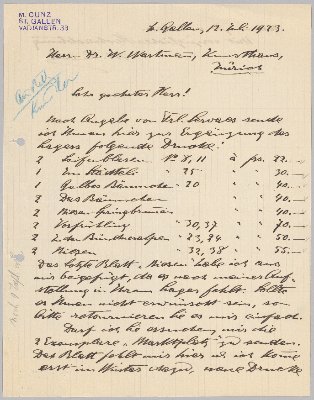 M. CUNZ
ST. GALLEN
VADIANSTR. 33
St. Gallen, 12. Juli 1923.
Herrn Dr. W. Wartmann, Kunsthaus,
Zürich
Sehr geehrter Herr!
Nach Angabe von Frl. sende
ich Ihnen hier zur Ergänzung des
Lagers folgende Drucke:
2 Seifenblasen No 8, 11 à frs. 22.—
1 Im " 25 " " 30.—
1 Gelbes " 20 " " 40.—
2 Das Bäumchen " " 40.—
2 " " 40.—
2 Vorfrühling " 30, 37 " " 70.—
2 " 23, 24 " " 50.—
2 Niesen " 32, 38 " " 55.—
Das letzte Blatt, Niesen habe ich
beigefügt, da es nach meiner Auf-
stellung in Ihrem Lager fehlt. Sollte
es Ihnen nicht erwünscht sein, so
bitte retournieren Sie es mir einfach.
Darf ich Sie ersuchen, mir die
2 Exemplare "Marktplatz" zu senden.
Das Blatt fehlt mir hier u. ich komme
erst im Winter dazu, neue Drucke